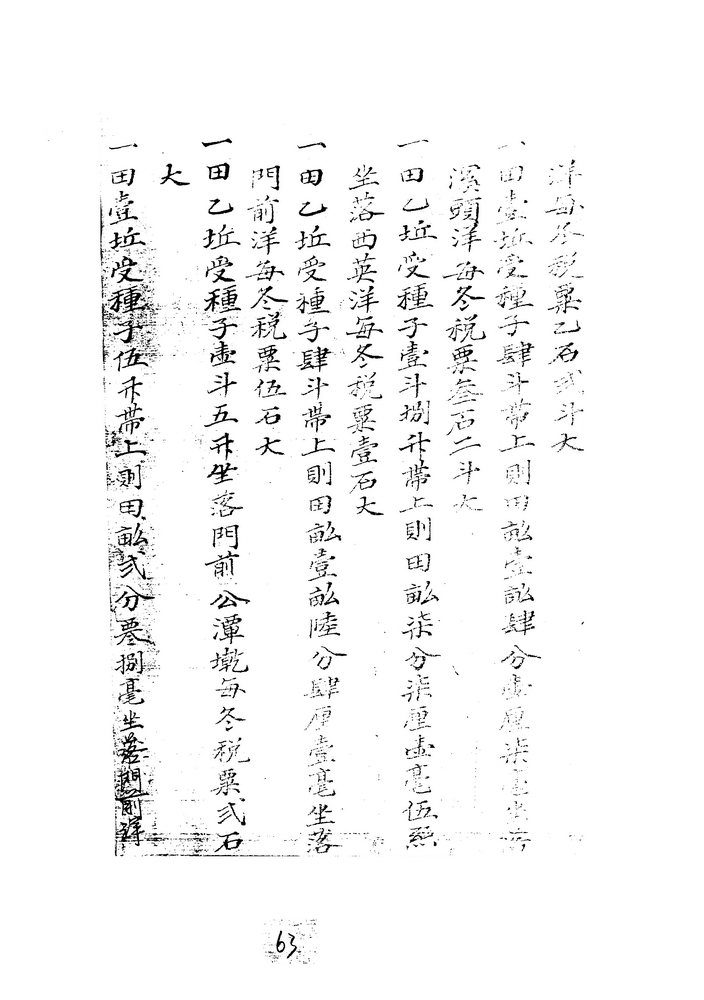 洋每冬稅粟乙石弍斗大
一田壹坵受種子肆斗帶上則田畝壹畝肆分壹厘柒毫坐落
濱頭洋每冬稅粟叁石二斗大
一田乙坵受種子壹斗捌升帶上則田畝柒分柒厘壹毫伍絲
坐落西英洋每冬稅粟壹石大
一田乙坵受種子肆斗帶上則田畝壹畝陸分肆厘壹毫坐落
門前洋每冬稅粟伍石大
一田乙坵受種子壹斗五升坐落門前公潭墘每冬稅粟弍石
大
一田壹坵受種子伍升帶上則田畝弍分捌毫坐落門前洋
63